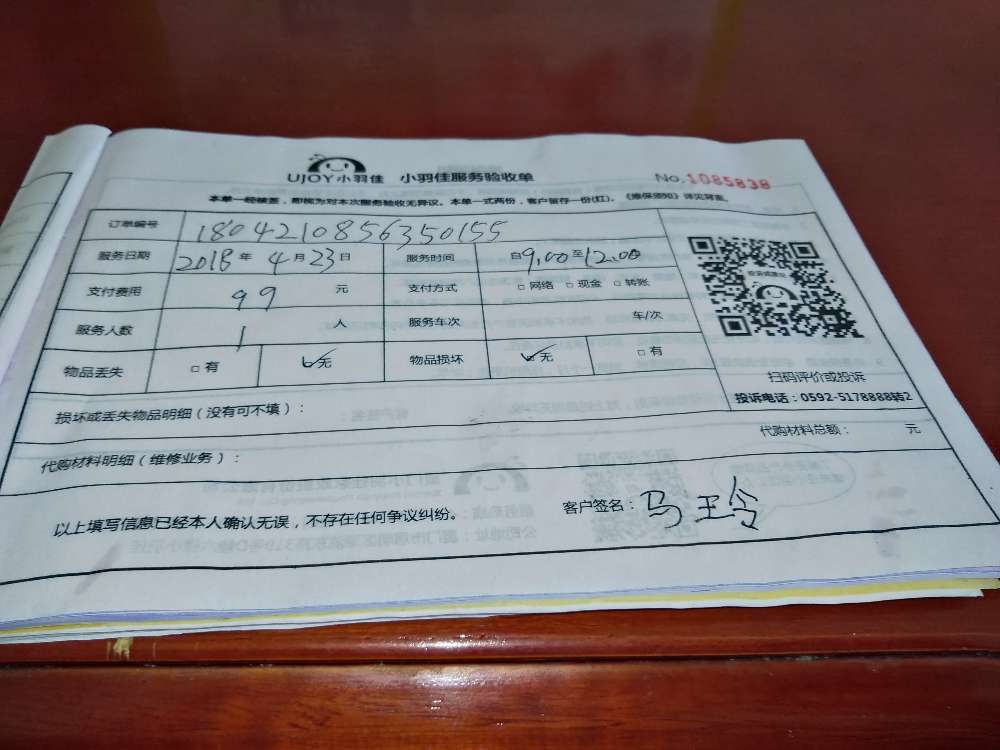 UJOY小羽佳 小羽佳服务验收单 No.1085838
本单一经签差，即视为对本次服务验收无异议。本单一式两份，客户留存一份(红)。《维保须知》详见背面。
订单编号 1804210856350155
服务日期 2018年4月23日 服务时间 自9:00至12:00
支付费用 99 元 支付方式 □网络 □现金 □转账
服务人数 1 人 服务车次 车/次
物品丢失 □有 ☑无 物品损坏 ☑无 □有
扫码评价或投诉
投诉电话：0592-5178888转2
损坏或丢失物品明细（没有可不填）：
代购材料总额： 元
代购材料明细（维修业务）：
以上填写信息已经本人确认无误，不存在任何争议纠纷。 客户签名：马玉令